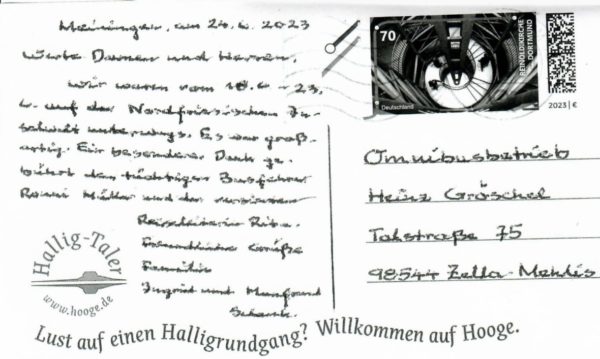 Meiningen, am 24.6.2023
Werte Damen und Herren,
wir waren vom 18.6 - 23.
6. auf der Nordfriesischen In-
selwelt unterwegs. Es war groß-
artig. Ein besonderer Dank ge-
bührt dem tüchtigen Busfahrer
Müller und der versierten
Reiseleiterin Rita.
Freundliche Grüße
Familie
Ingrid und Manfred
Schenk.
70
Deutschland
REINOLDIKIRCHE
DORTMUND
2023 | €
Omnibusbetrieb
Heinz Gröschel
Talstraße 75
98544 Zella-Mehlis
Hallig-Taler
www.hooge.de
Lust auf einen Halligrundgang? Willkommen auf Hooge.